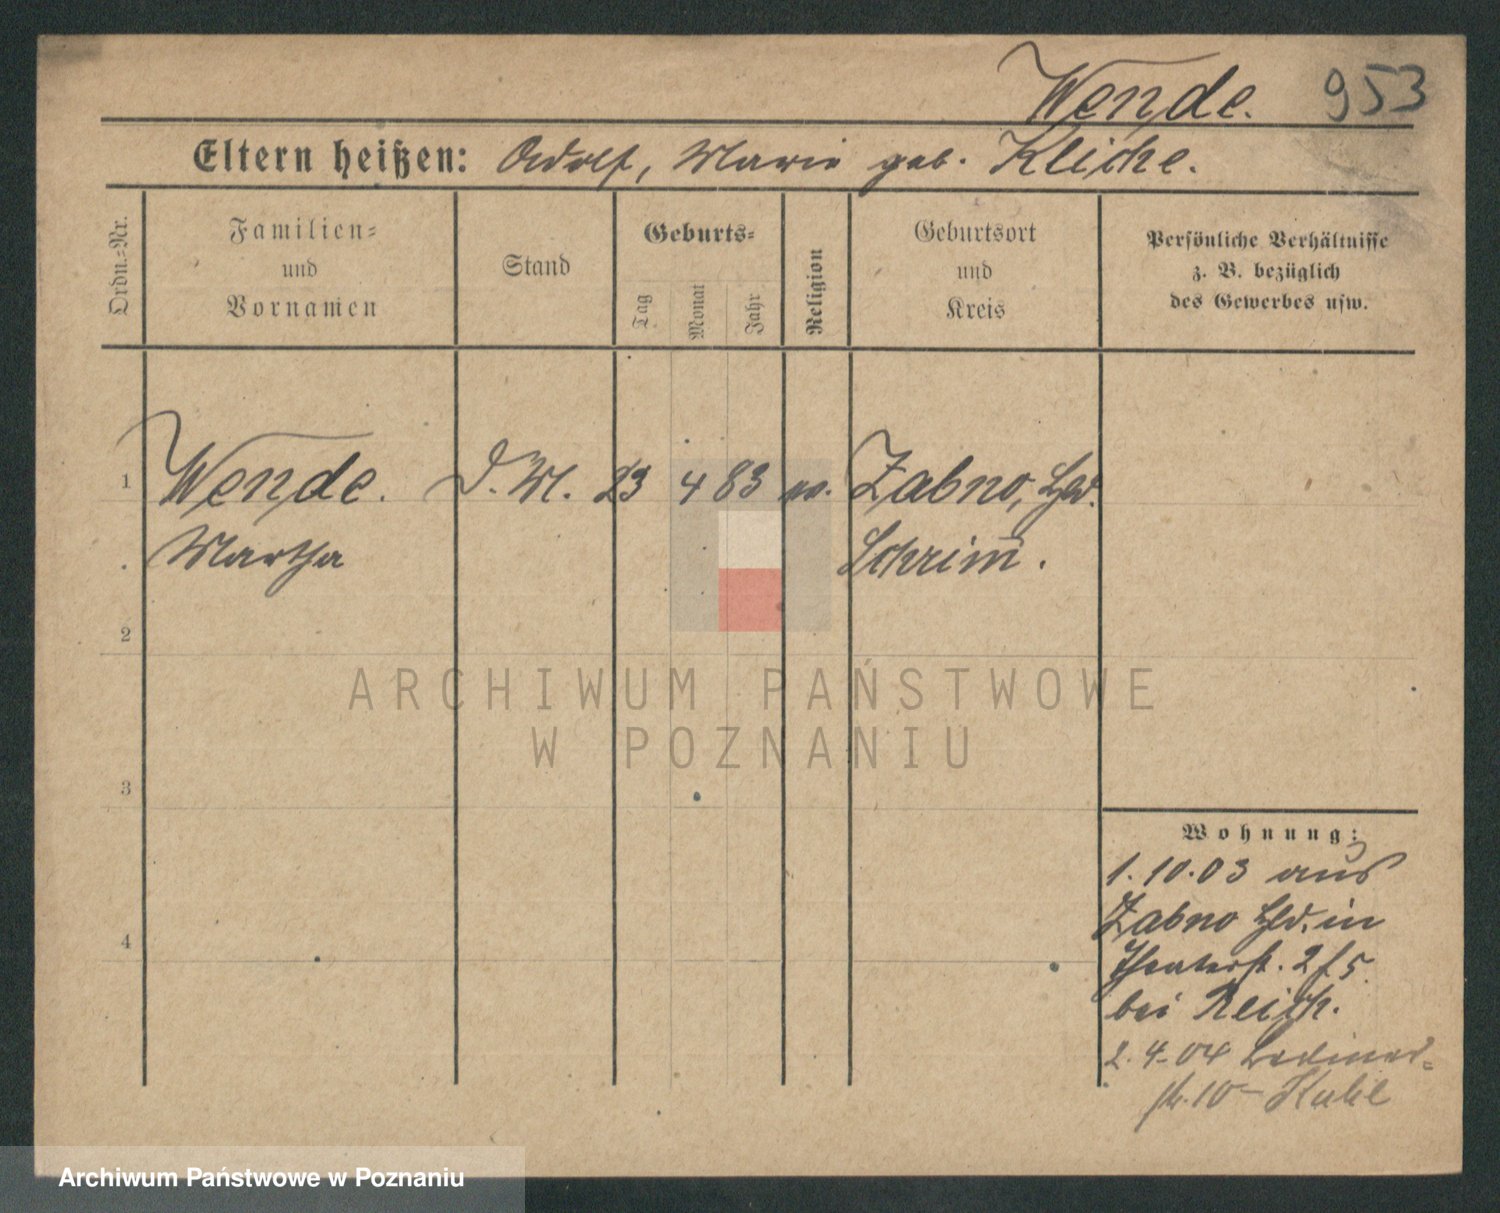 Wende. 953
Eltern heißen: Adolf, Marie geb. Kliche.
Ordn.-Nr.
Familien-
und
Vornamen
Stand
Geburts-
Tag
Monat
Jahr
Religion
Geburtsort
und
Kreis
Persönliche Verhältnisse
z. B. bezüglich
des Gewerbes usw.
1 Wende. D. M. 23 4 83 ev. Zabno, Hld.
Martha Schrimm.
2
3
4
ARCHIWUM PAŃSTWOWE
W POZNANIU
Wohnung:
1.10.03 aus
Zabno Hld. in
Theaterst. 2 f 5
bei Reich.
2.4.04
str. 10-
Archiwum Państwowe w Poznaniu